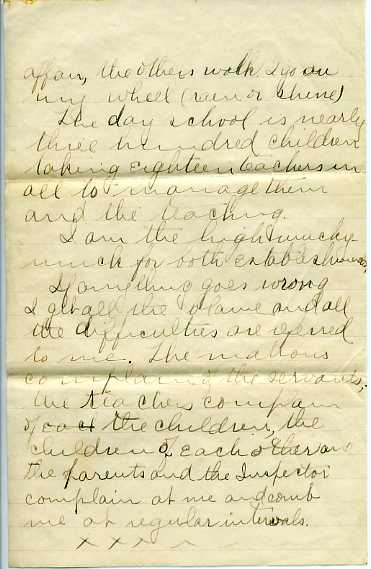 affair, the others walk I go on
my wheel (rain or shine)
The day school is nearly
three hundred children
taking eighteen teachers in
all to manage them
and the teaching.
I am the high muckey
muck for both establishments.
If anything goes wrong
I get all the blame and all
the difficulties are referred
to me. The matrons
complain of the servants,
the teachers complain
of the children, the
children of each other and
the parents and the Inspector
complain at me and comb
me at regular intervals.
x x x x